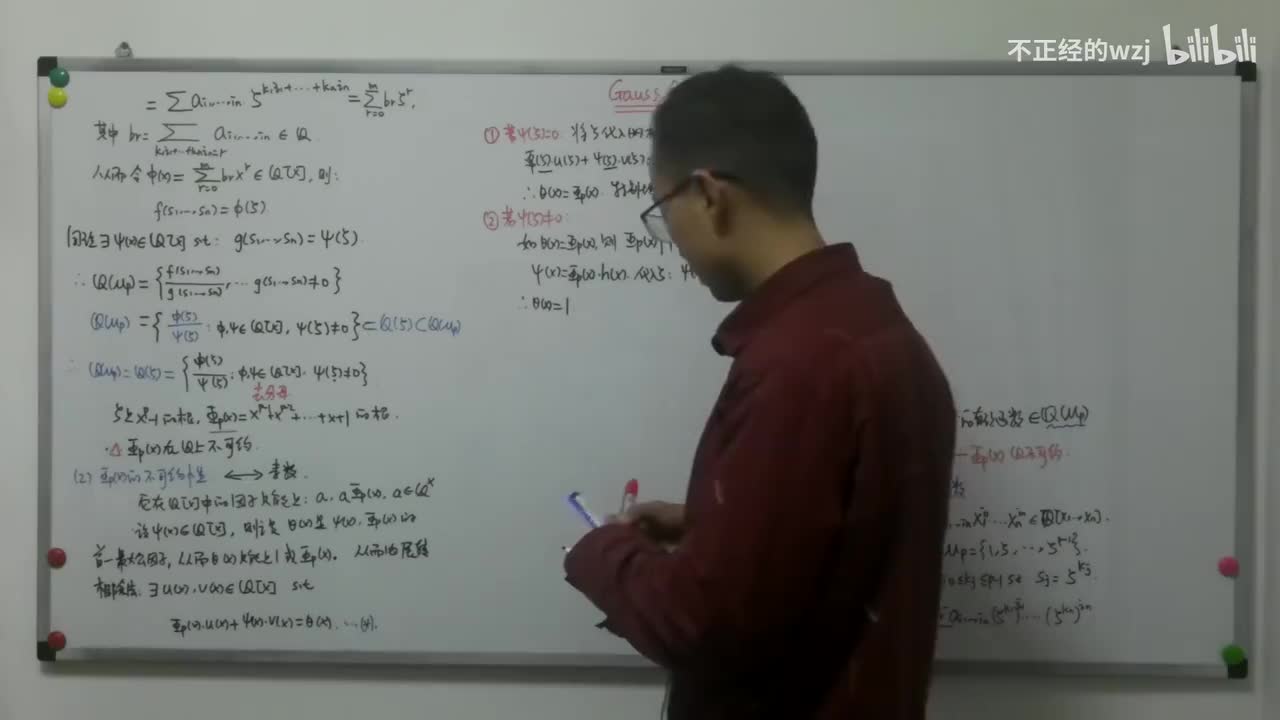 不正经的wzj bilibili
= ∑ a_{i₁…in} ζ^{k₁i₁+…+knin} = ∑_{r=0}^{m} b_r ζ^r,
其中 b_r = ∑_{k₁i₁+…+knin=r} a_{i₁…in} ∈ Q.
从而令 φ(x) = ∑_{r=0}^{m} b_r x^r ∈ Q[x], 则:
f(s₁,…,sn) = φ(ζ).
同理 ∃ ψ(x) ∈ Q[x] s.t: g(s₁,…,sn) = ψ(ζ).
∴ Q(μp) = { f(s₁,…,sn)/g(s₁,…,sn), … g(s₁,…,sn) ≠ 0 }
Q(μp) = { φ(ζ)/ψ(ζ) : φ,ψ ∈ Q[x], ψ(ζ) ≠ 0 } ⊂ Q(ζ) ⊂ Q(μp)
∴ Q(μp) = Q(ζ) = { φ(ζ)/ψ(ζ) : φ,ψ ∈ Q[x], ψ(ζ) ≠ 0 }
去分母
ζ是 x^p-1 的根, Φp(x) = x^{p-1}+x^{p-2}+…+x+1 的根.
△ Φp(x) 在 Q 上不可约.
(2) Φp(x) 的不可约性 ⟷ 素数.
它在 Q[x] 中的因子只能是: a, aΦp(x), a ∈ Q^×
设 ψ(x) ∈ Q[x], θ(x) 是 ψ(x), Φp(x) 的
首一最大公因子, 从而 θ(x) 只能是 1 或 Φp(x). 从而由辗转
相除法, ∃ u(x), v(x) ∈ Q[x] s.t
Φp(x)·u(x) + ψ(x)·v(x) = θ(x). …(*).
Gauss
① 若 ψ(ζ)=0: 将 ζ 代入
Φ(ζ)·u(ζ) + ψ(ζ)·v(ζ)
∴ θ(x) = Φp(x).
② 若 ψ(ζ)≠0:
如 θ(x) = Φp(x), 则 Φp(x) |
ψ(x) = Φp(x)·h(x). 代入 ζ:
∴ θ(x) = 1
∈ Q(μp)
Φp(x) Q 不可约.
数
…in x₁^{i₁}…xn^{in} ∈ Q[x₁…xn].
μp = {1, ζ, …, ζ^{p-1}}.
0≤kj≤p-1 s.t sj = ζ^{kj}.
∑ a_{i₁…in} (ζ^{k₁})^{i₁} … (ζ^{kn})^{in}